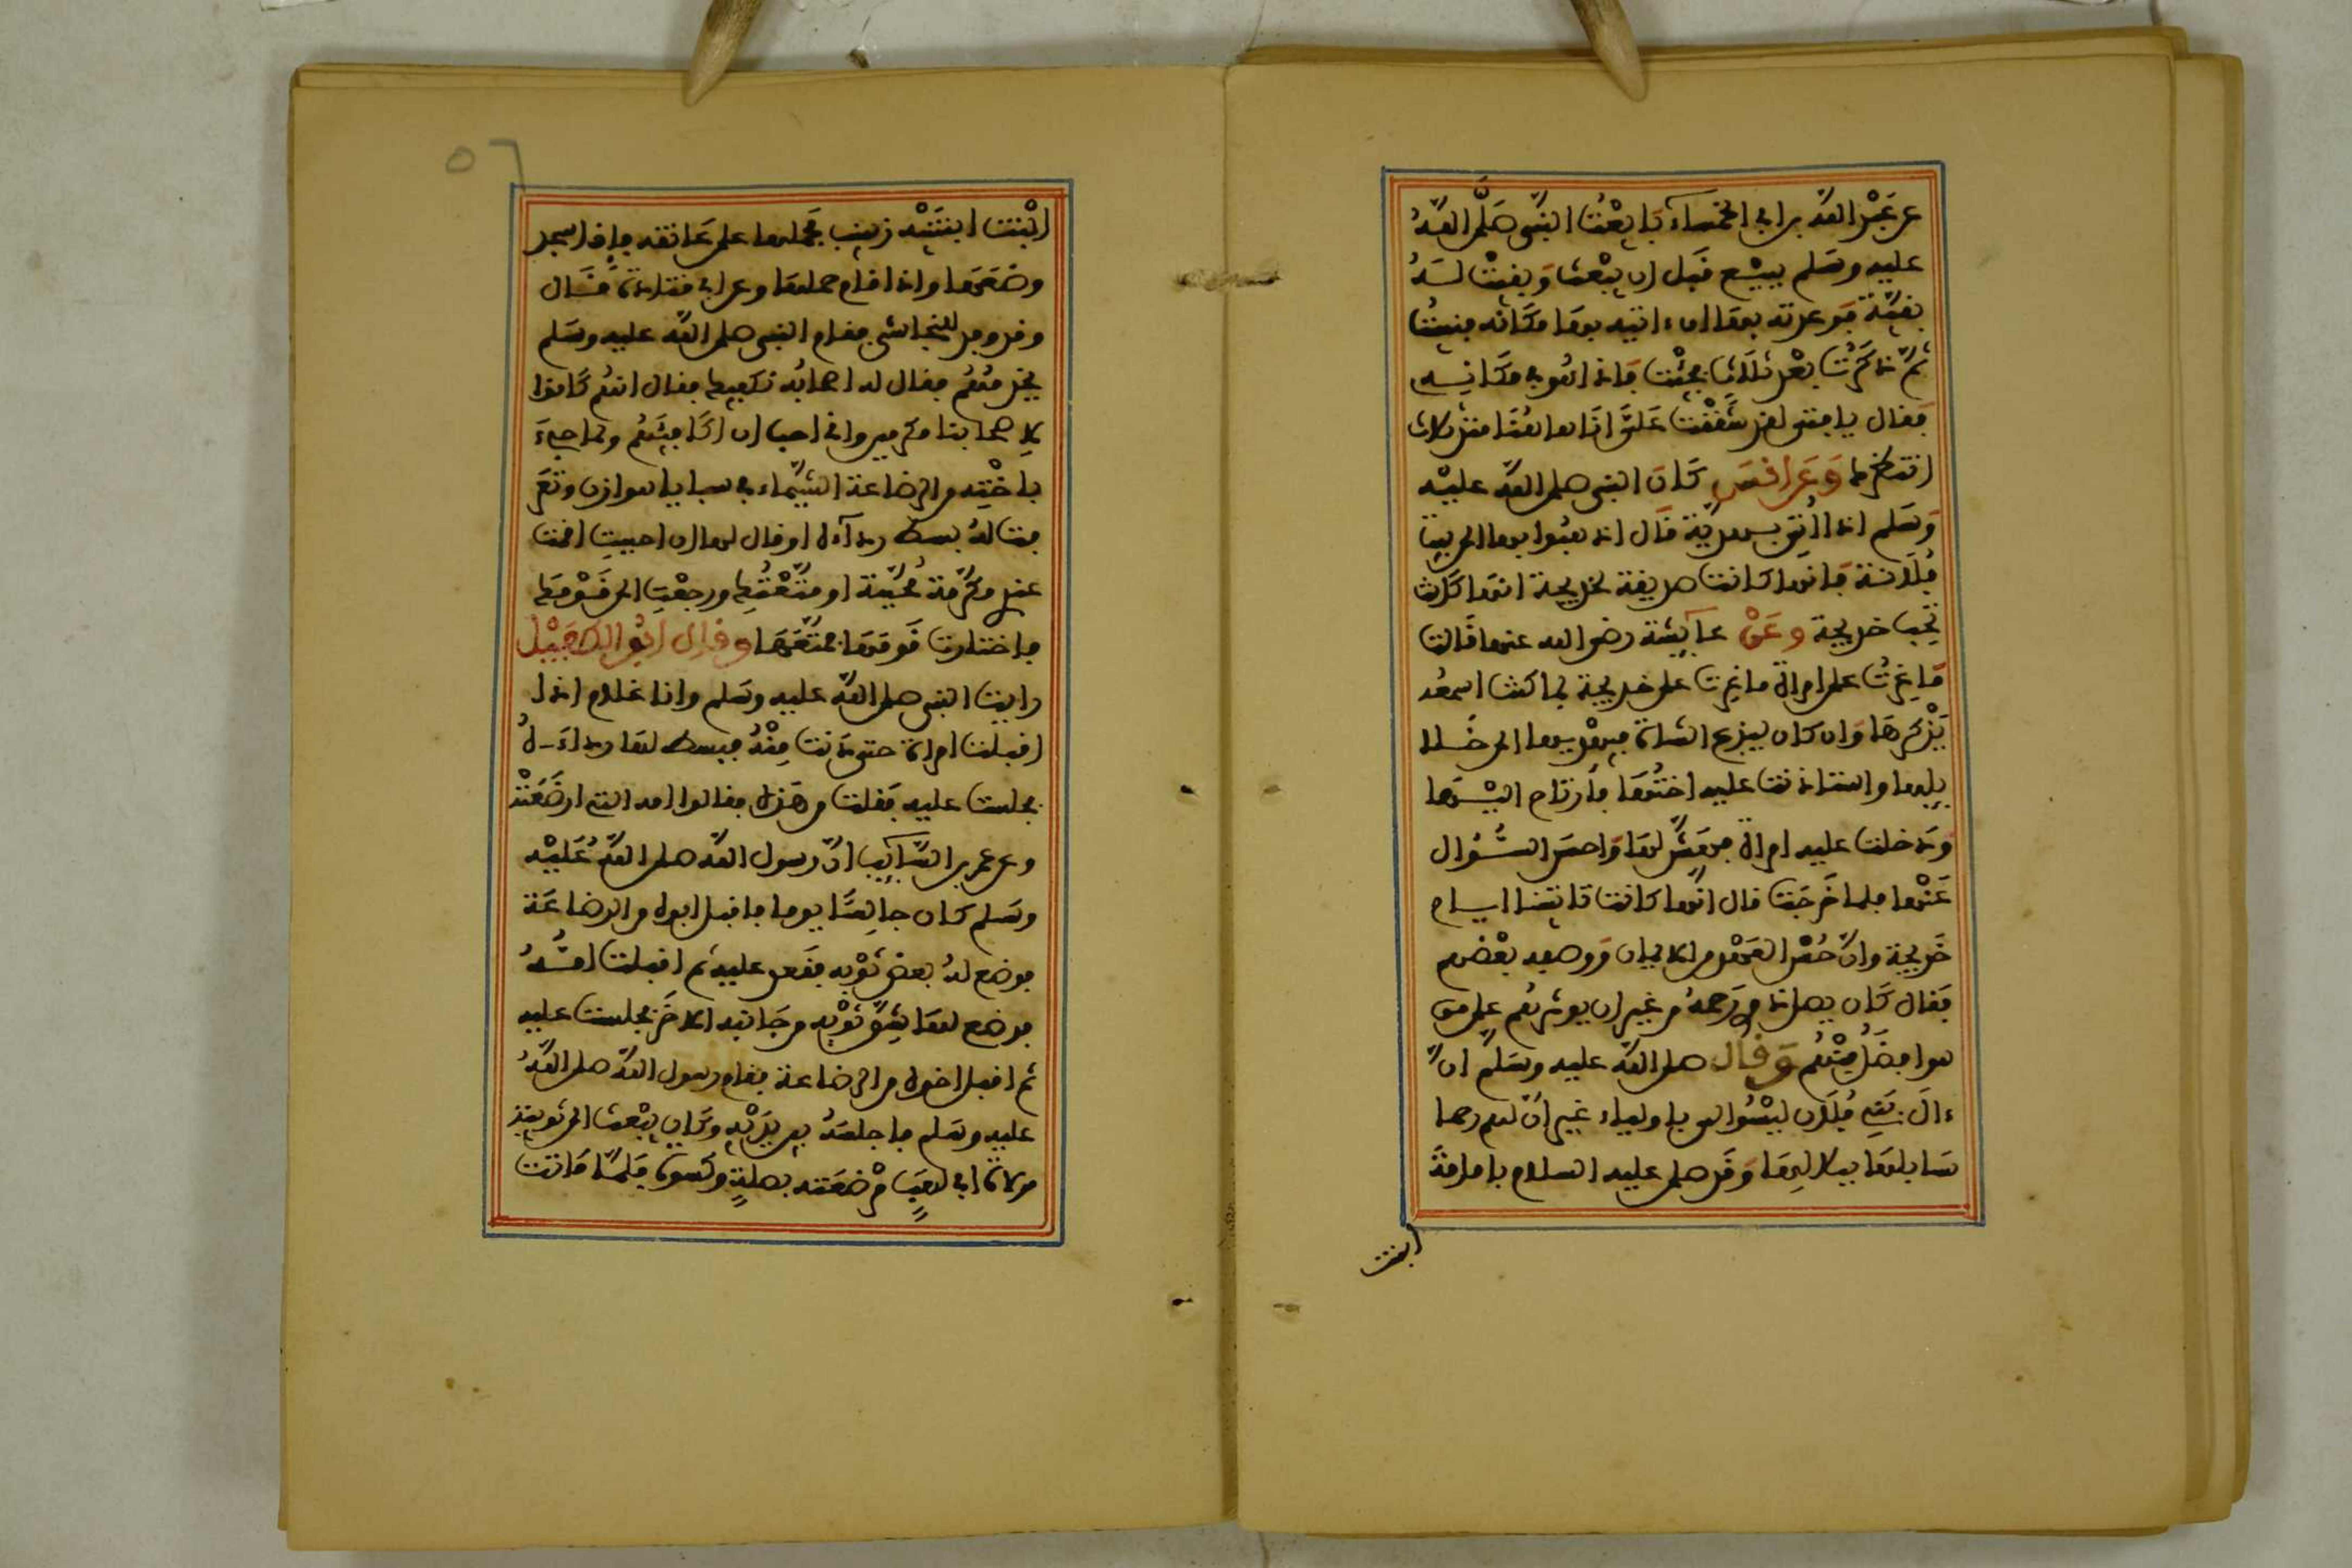 عن عبد الله بن أبي الخمساء بايعت النبي صلى الله
عليه وسلم ببيع قبل ان يبعث وبقيت لـه
بقية فوعدته بها ان اتيه بها مكانه فنسيت
ثم ذكرت بعد ثلاث فجئت فاذا هو في مكانه
فقال يا فتى لقد شققت علي انا هاهنا منذ ثلاث
انتظرك وعن انس كان النبي صلى الله عليه
وسلم اذا اتي بهدية قال اذهبوا بها الى بيت
فلانة فانها كانت صديقة لخديجة انها كانت
تحب خديجة وعن عايشة رضي الله عنها قالت
ما غرت على امراة ما غرت على خديجة لما كنت اسمعه
يذكرها وان كان ليذبح الشاة فيهديها الى خلا
يلها واستاذنت عليه اختها فارتاح اليها
ودخلت عليه امراة فهش لها واحسن السؤال
عنها فلما خرجت قال انها كانت تاتينا ايام
خديجة وان حسن العهد من الايمان ووصفه بعضهم
فقال كان يصل ذوي رحمه من غير ان يوثرهم على من
هو افضل منهم وقال صلى الله عليه وسلم ان
ءال بني فلان ليسوا لي باولياء غير ان لهم رحما
سابلها ببلالها وقد صلى عليه السلام بامامة
ابنت
٥٦
ابنت ابنته زينب يحملها على عاتقه فاذا سجد
وضعها واذا قام حملها وعن ابي قتادة قال
وفد وفد للنجاشي فقام النبي صلى الله عليه وسلم
يخدمهم فقال له اصحابه نكفيك فقال انهم كانوا
لاصحابنا مكرمين واني احب ان اكافيهم ولما جيء
باخته من الرضاعة الشيماء في سبايا هوازن وتعر
فت له بسط رداءه وقال لها ان احببت اقمت
عندي مكرمة محببة او متعتك ورجعت الى قومك
فاختارت قومها فمتعها وقال ابو الطفيل
رايت النبي صلى الله عليه وسلم وانا غلام اذا
اقبلت امراة حتى دنت منه فبسط لها رداءه
فجلست عليه فقلت من هذه فقالوا امه التي ارضعته
وعن عمر بن السايب ان رسول الله صلى الله عليه
وسلم كان جالسا يوما فاقبل ابوه من الرضاعة
فوضع له بعض ثوبه فقعد عليه ثم اقبلت امـه
فوضع لها شق ثوبه من جانبه الاخر فجلست عليه
ثم اقبل اخوه من الرضاعة فقام رسول الله صلى الله
عليه وسلم فاجلسه بين يديه وكان يبعث الى ثويبة
مولاة ابي لهب مرضعته بصلة وكسوة فلما ماتت